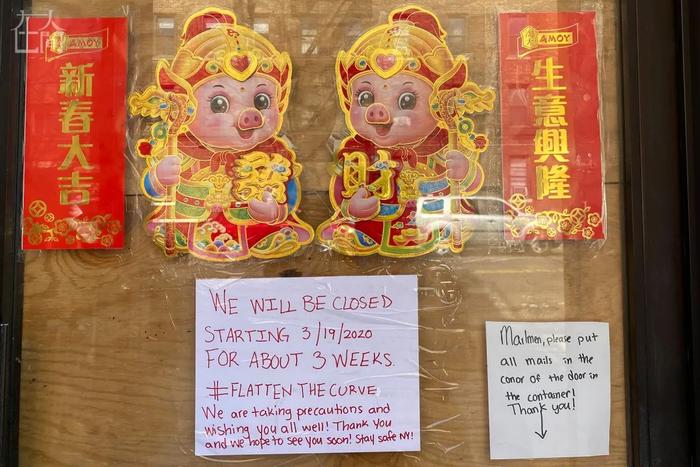 AMOY
新春大吉
財
AMOY
生意興隆
WE WILL BE CLOSED
STARTING 3/19/2020
FOR ABOUT 3 WEEKS.
#FLATTEN THE CURVE
We are taking precautions and
wishing you all well! Thank you
and we hope to see you soon! Stay safe NY!
Mailmen, please put
all mails in the
conor of the door in
the container!
Thank you!